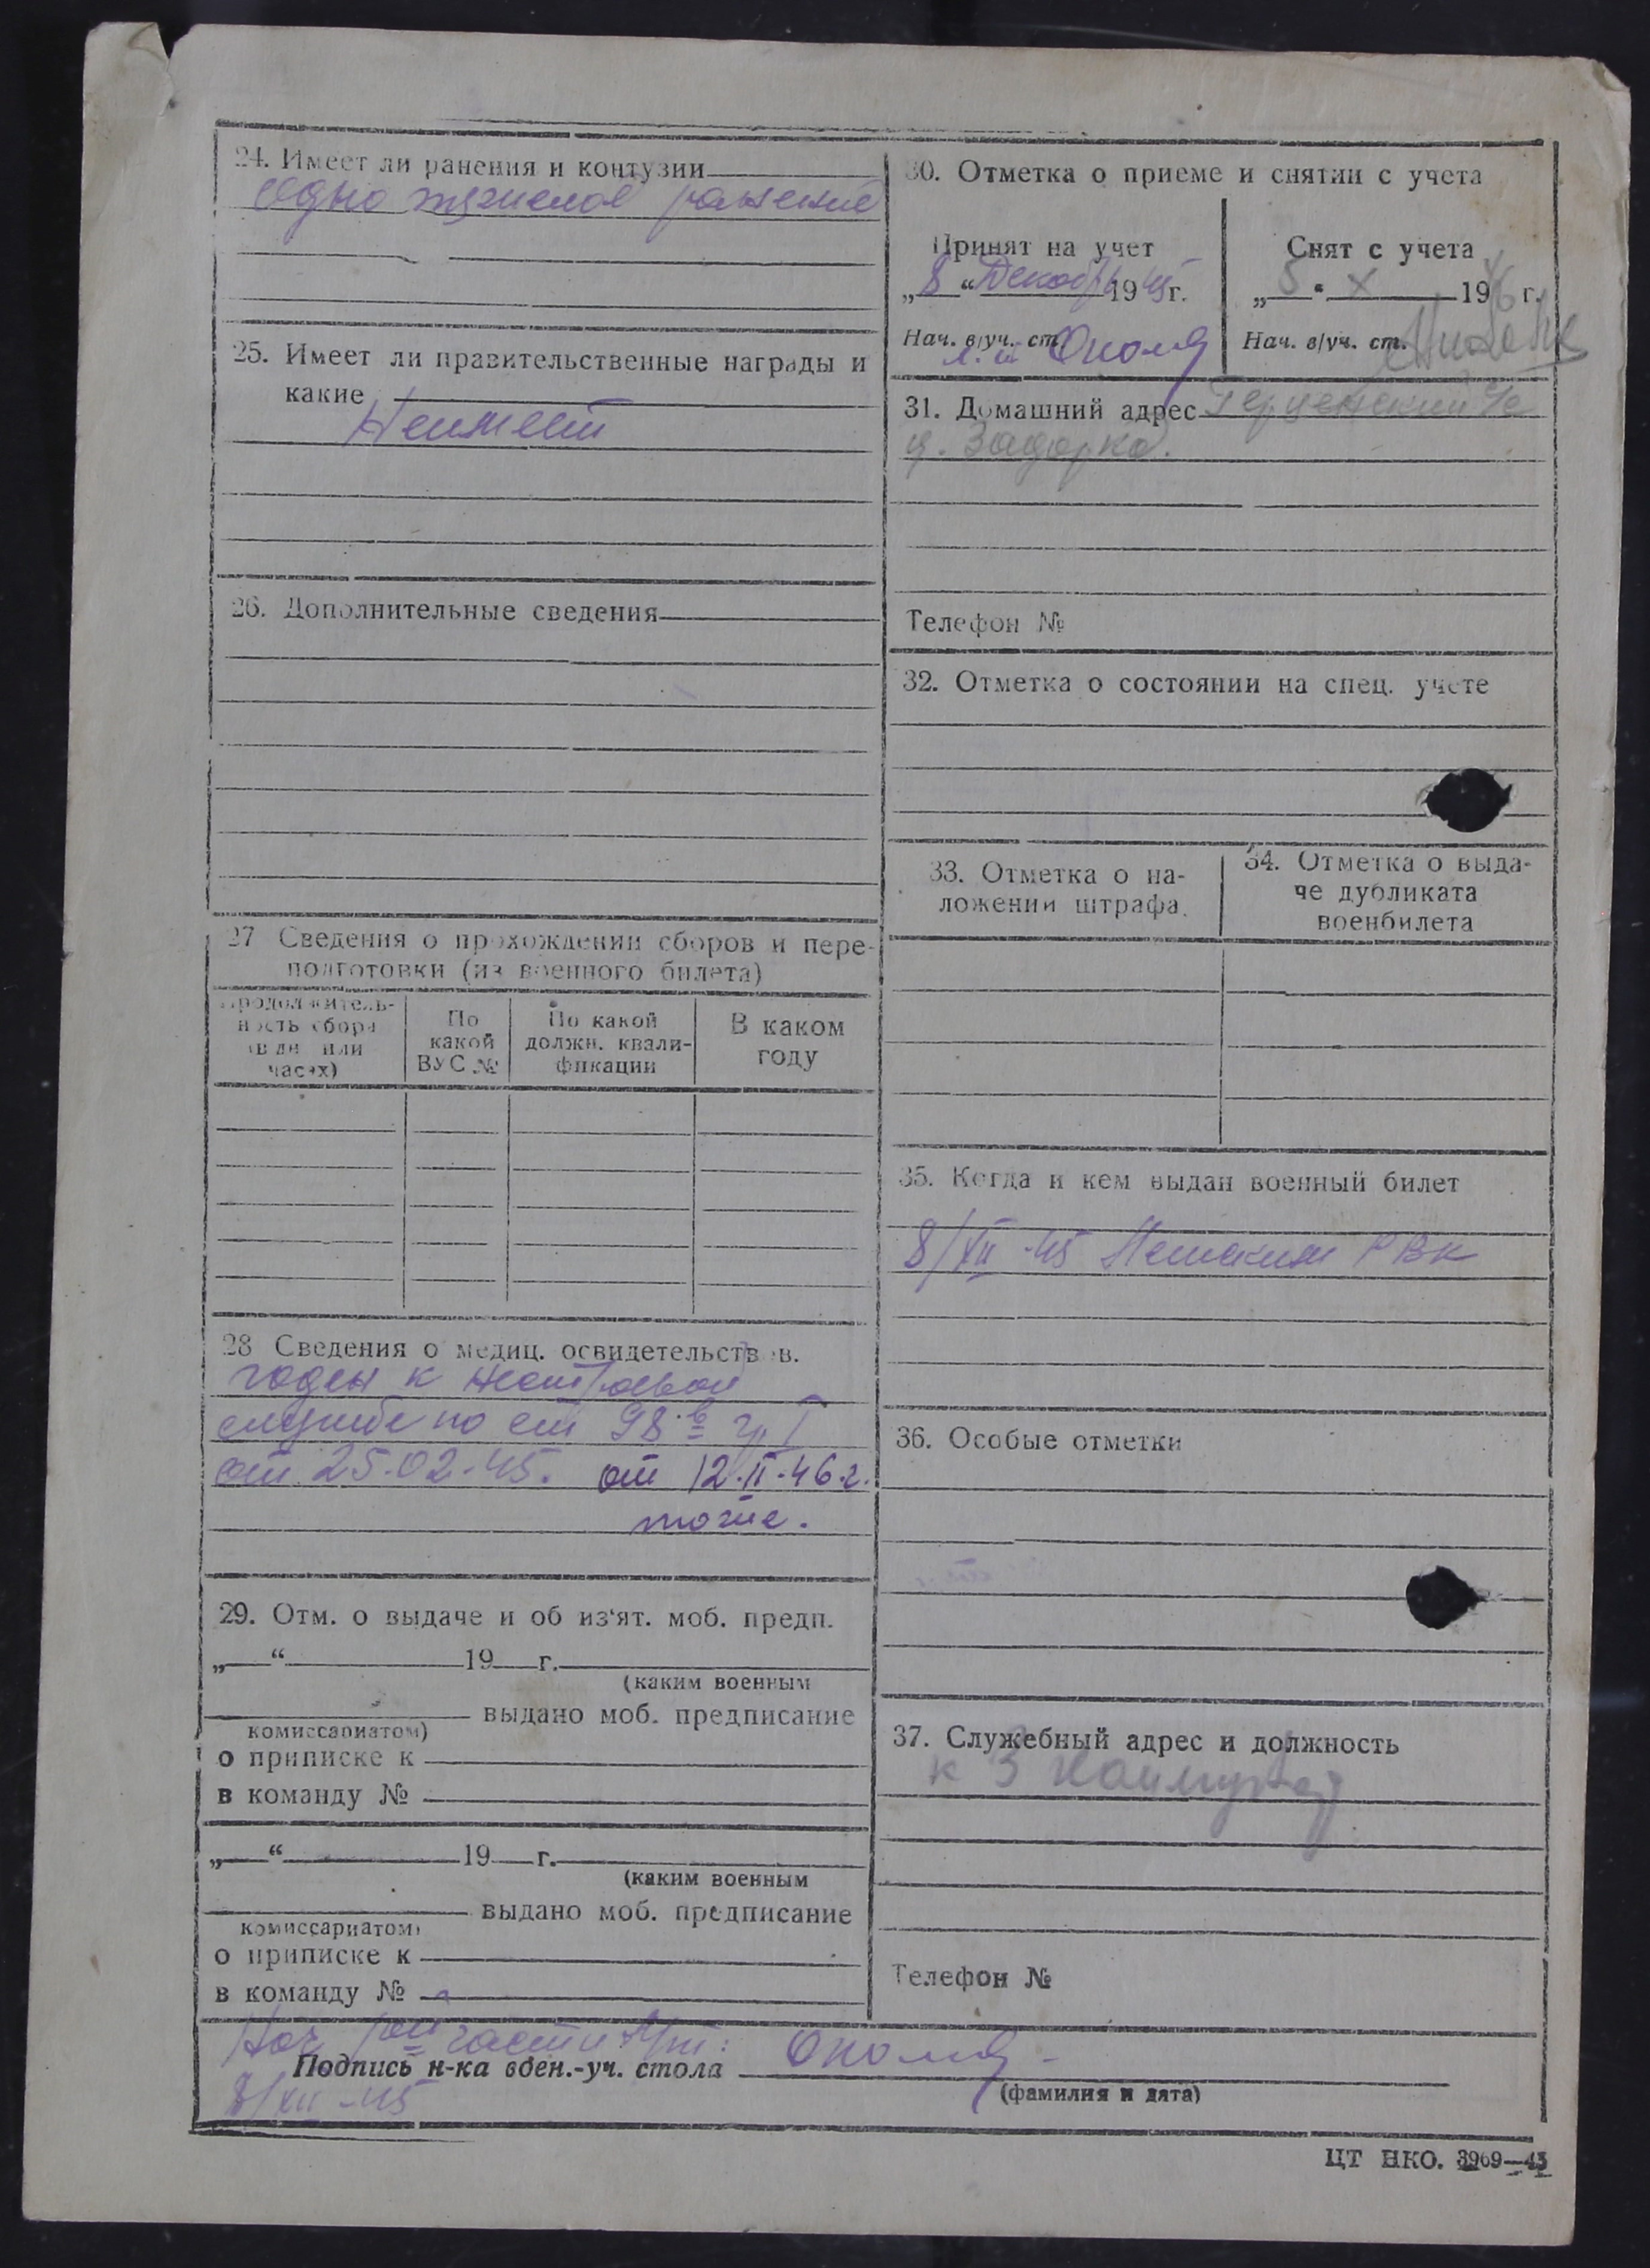 24. Имеет ли ранения и контузии
Одно тяжелое ранение
25. Имеет ли правительственные награды и
какие
Неимеет
26. Дополнительные сведения
27 Сведения о прохождении сборов и пере-
подготовки (из военного билета)
Продолжитель-
ность сбора
(в дн или
часах)
По
какой
ВУС №
По какой
должн. квали-
фикации
В каком
году
28 Сведения о медиц. освидетельств в.
годен к
службе по ст 98.в гр I
от 25.02.45. от 12.II.46.г.
тоже.
29. Отм. о выдаче и об из‘ят. моб. предп.
„ “ 19 г.
(каким военным
выдано моб. предписание
комиссариатом)
о приписке к
в команду №
„ “ 19 г.
(каким военным
выдано моб. предписание
комиссариатом)
о приписке к
в команду №
30. Отметка о приеме и снятии с учета
Принят на учет
„8“ Декабр 1945г.
Нач. в/уч. ст.
Снят с учета
„5“ X 1946 г.
Нач. в/уч. ст.
31. Домашний адрес Герценский с/с
д. Задорка.
Телефон №
32. Отметка о состоянии на спец. учете
33. Отметка о на-
ложении штрафа.
34. Отметка о выда-
че дубликата
военбилета
35. Когда и кем выдан военный билет
8/XII-45 РВК
36. Особые отметки
37. Служебный адрес и должность
к З
Телефон №
Нач части
Подпись н-ка воен.-уч. стола
8/XII-45
(фамилия и дата)
ЦТ НКО. 3969—43